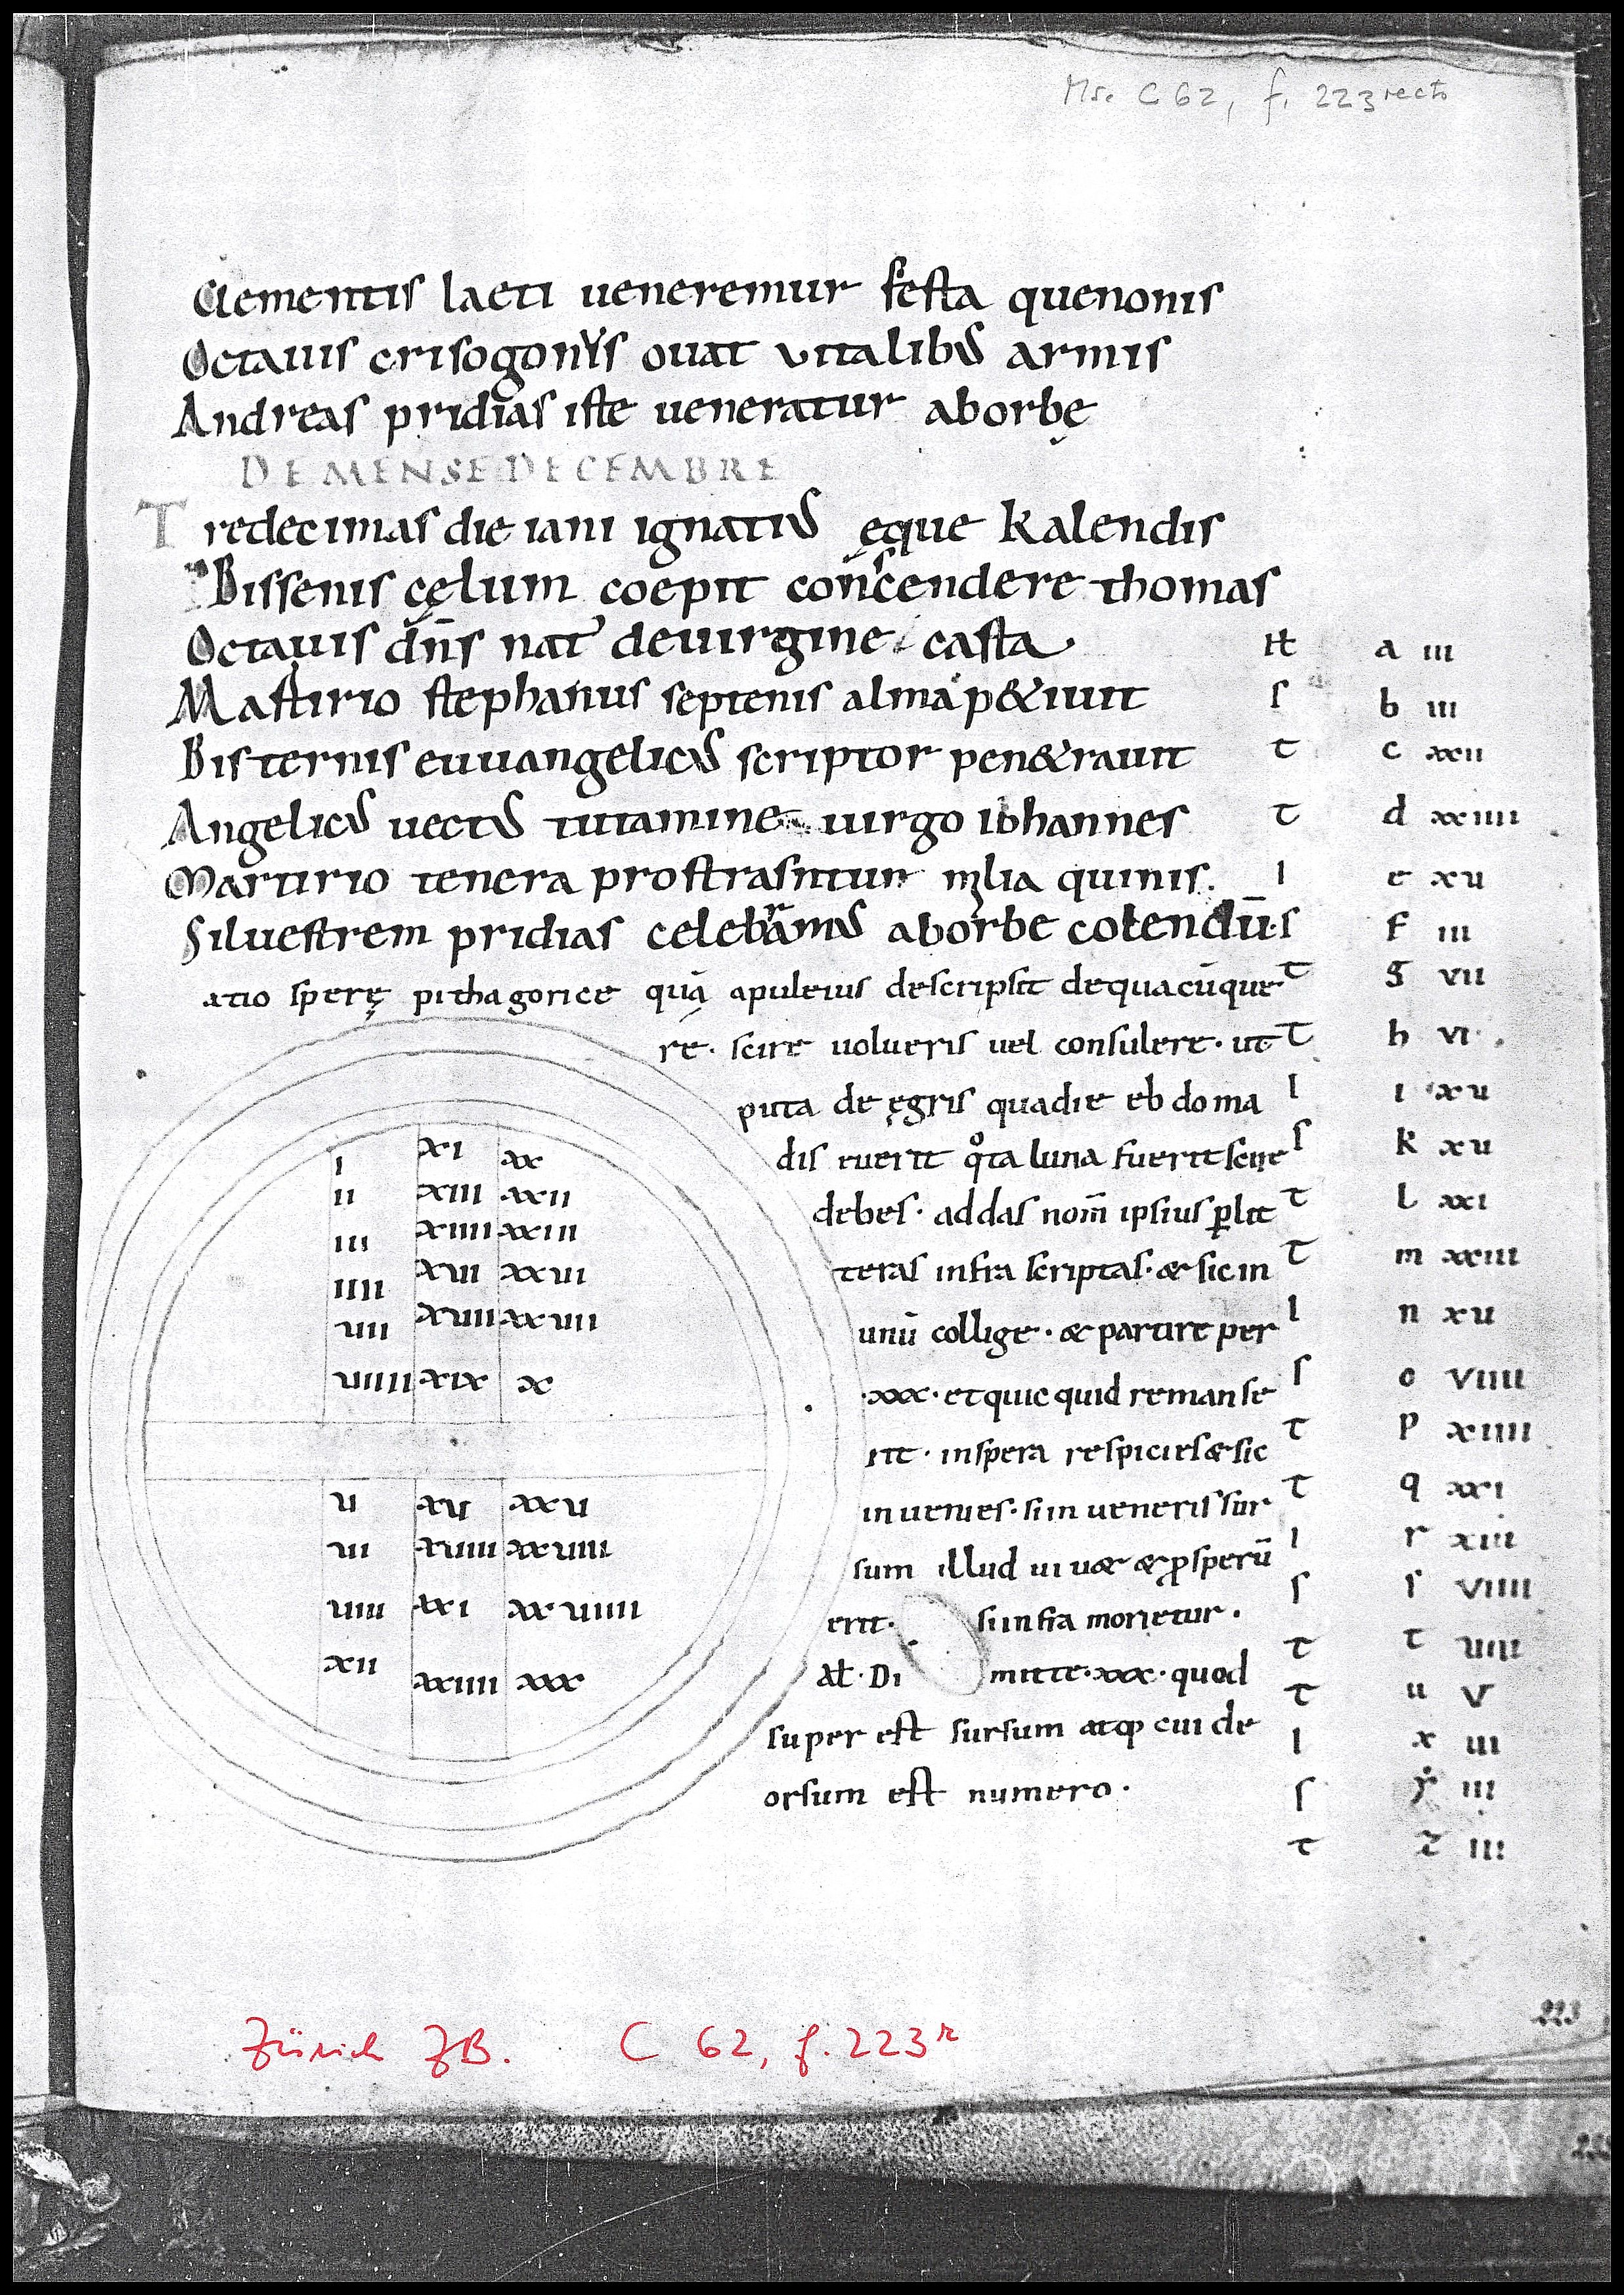 Ms. C 62, f. 223 recto
Clementis laeti ueneremur festa quenonis
Octauis crisogonus ouat uitalibus armis
Andreas pridias iste ueneratur aborbę
DE MENSE DECEMBRE
Tredecimas die iani ignatius ęque kalendis
Bissenis cęlum coepit conscendere thomas
Octauis dn̄s nat' deuirgine casta
Mastirio stephanus septenis alma p&iuit
Bisternis euuangelicus scriptor pen&rauit
Angelicus uectus tutamine uirgo iohannes
Martirio tenera prostrasntur milia quinis.
Siluestrem pridias celebramus aborbe colendū
atio sperę pithagorice quā apuleius descripsit dequacūque
rē. scire uolueris uel consulere. ut
puta de ęgris quadie ebdoma
dis euerit qͦta luna fuerit scire
debes. addas nom̄ ipsius ꝑ lit
teras infra scriptas. & sic in
unū collige. & partire per
.xxx. et quicquid remanse
rit. inspera respicies & sic
inuenies. si inueneris sur
sum illud uiu& & ꝓsperū
erit. si infra morietur.
Ał. Di mitte. xxx. quod
super est sursum atq; cui de
orsum est numero.
i xi xx
ii xiii xxii
iii xiiii xxiii
iiii xui xxui
uii xuii xxuii
uiiii xix x
u xu xxu
ui xuiii xxuiii
uiii xxi xxuiiii
xii xxiiii xxx
łt a iii
s b iii
t c xxii
t d xxiiii
l e xu
s f iii
t g vii
t h vi
l i xu
s k xu
t l xxi
t m xxiii
l n xu
s o viiii
t p xiiii
t q xxi
l r xiii
s s viiii
t t uiii
t u v
l x iii
s ẏ iii
t z iii
223
Zürich ZB. C 62, f. 223r